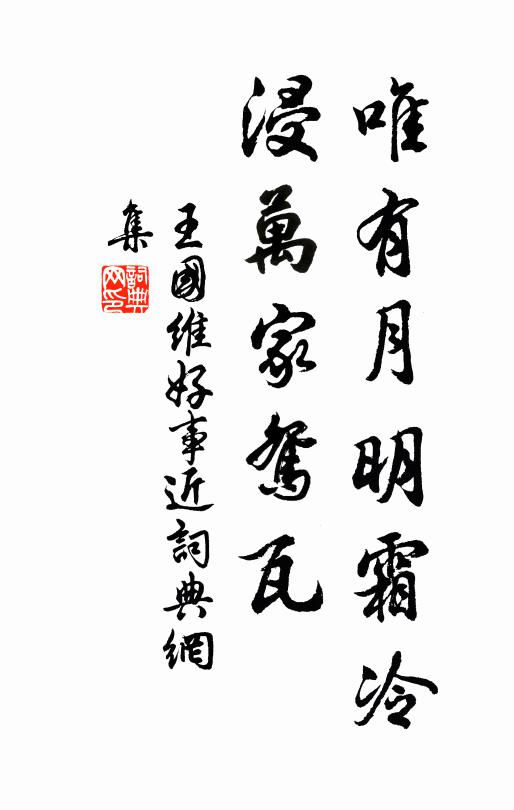 唯有月明霜冷
浸萬家鴛瓦
王國維好事近詞典網
集
詞典網印